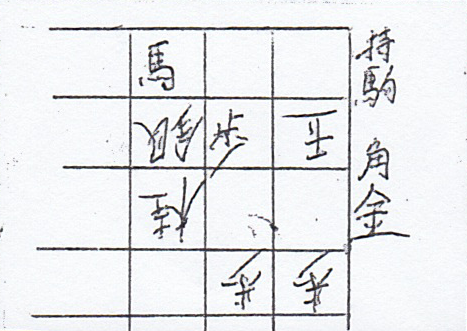 持駒 角金
馬
銀 歩 玉
桂
歩 歩